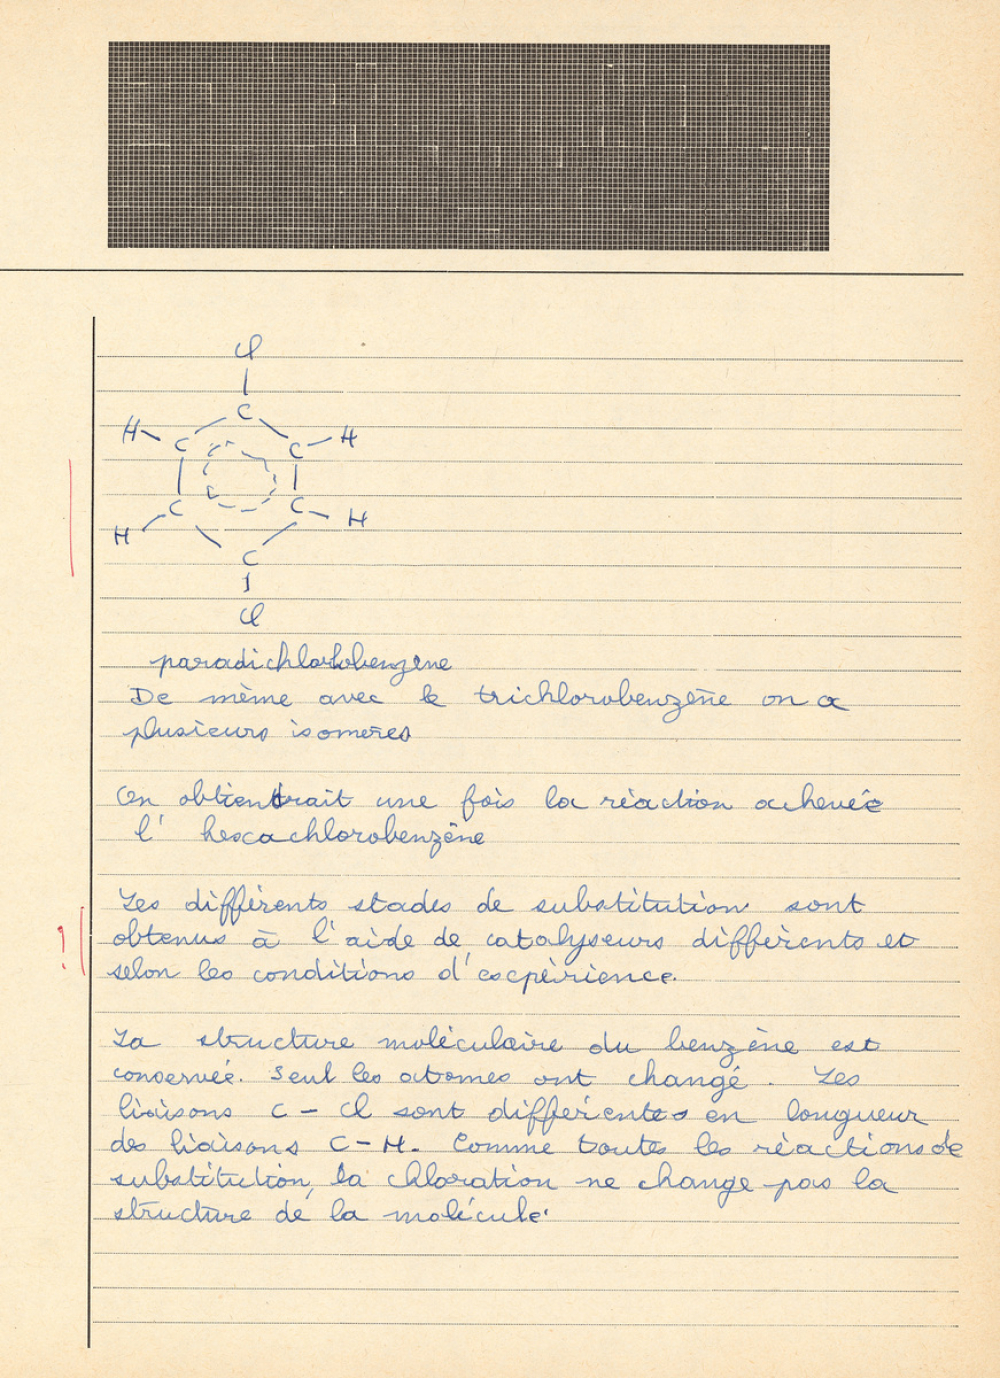 Cl
C
H C C H
C C H
H
C
Cl
paradichlorobenzène
De même avec le trichlorobenzène on a
plusieurs isomères
On obtiendrait une fois la réaction achevée
l' hexachlorobenzène
Les différents stades de substitution sont
! obtenus à l'aide de catalyseurs différents et
selon les conditions d'expérience.
La structure moléculaire du benzène est
conservée. Seul les atomes ont changé. Les
liaisons C-Cl sont différentes en longueur
des liaisons C-H. Comme toutes les réactions de
substitution, la chloration ne change pas la
structure de la molécule.